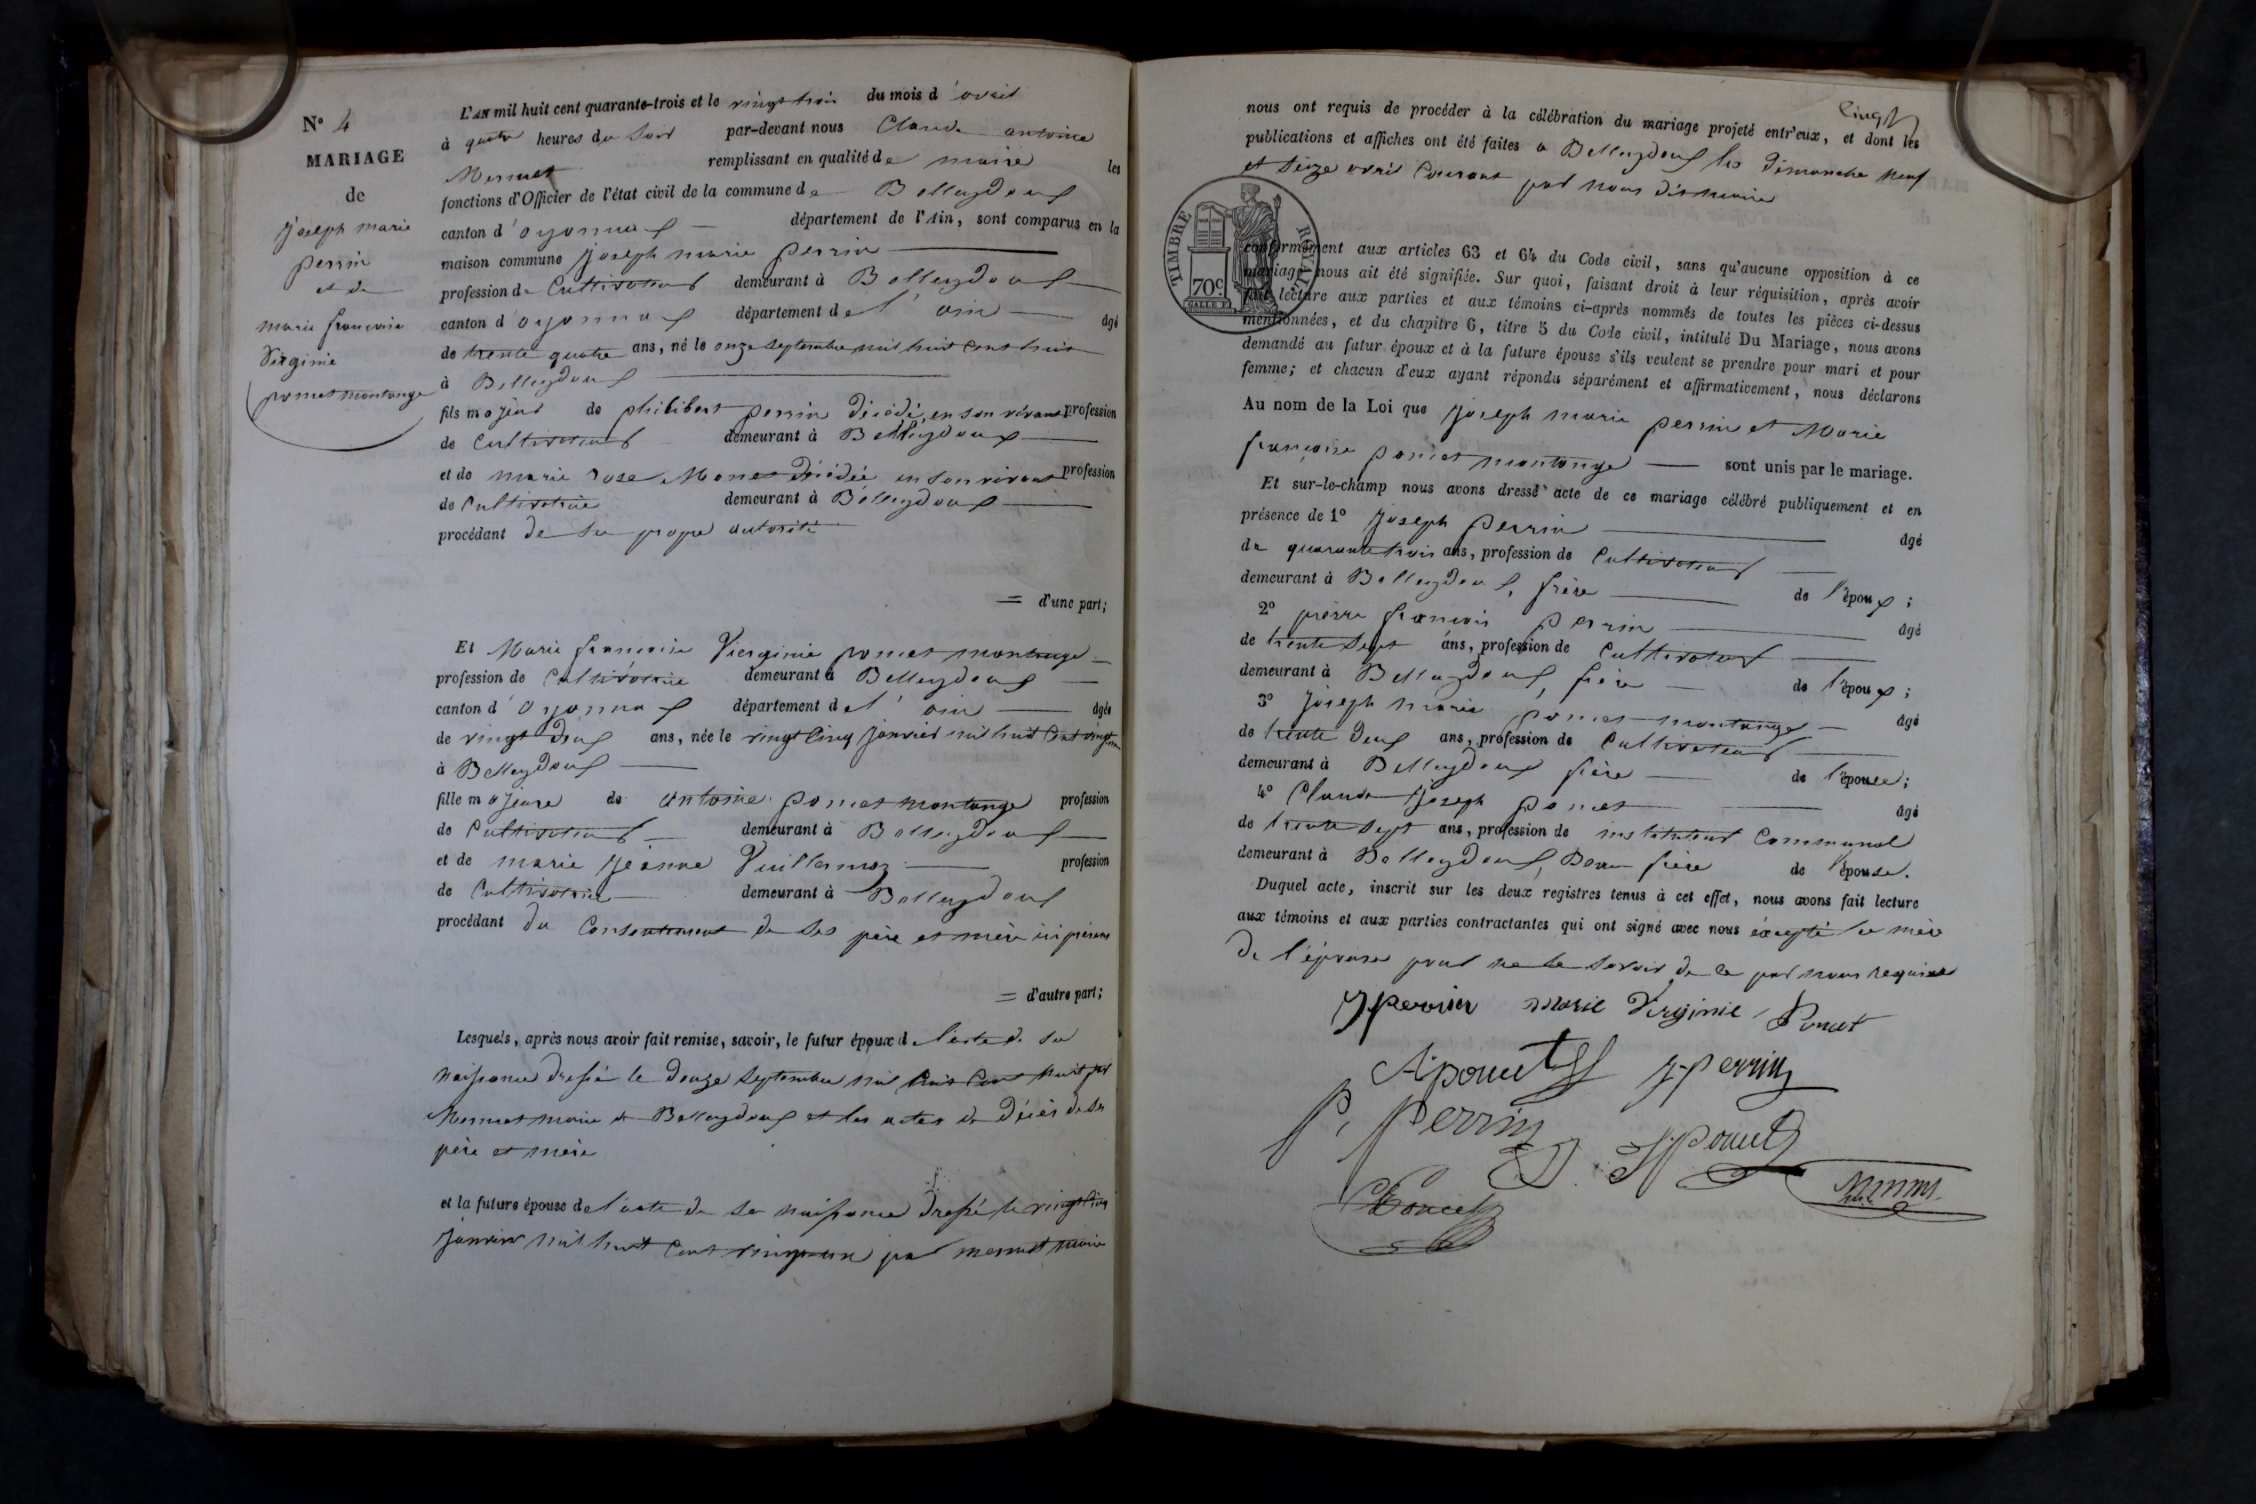 N° 4
MARIAGE
de
joseph marie
perrin
et de
marie françoise
Virginie
poncet montange
L'AN mil huit cent quarante-trois et le vingt trois du mois d'avril
à quatre heures du soir par-devant nous Claude antoine
Mermet remplissant en qualité de maire les
fonctions d'Officier de l'état civil de la commune de Belleydoux
canton d'oyonnax département de l'Ain, sont comparus en la
maison commune joseph marie perrin
profession de Cultivateur demeurant à Belleydoux
canton d'oyonnax département de l'ain âgé
de trente quatre ans, né le onze septembre mil huit cent huit
à Belleydoux
fils majeur de philibert perrin décédé, en son vivant profession
de Cultivateur demeurant à Belleydoux
et de marie rose Monet décédée en son vivant profession
de Cultivatrice demeurant à Belleydoux
procédant de sa propre autorité
= d'une part;
Et Marie françoise Vierginie poncet montange
profession de Cultivatrice demeurant à Belleydoux
canton d'oyonnax département de l'ain âgée
de vingt deux ans, née le vingt cinq janvier mil huit cent vingt un
à Belleydoux
fille majeure de antoine poncet montange profession
de Cultivateur demeurant à Belleydoux
et de marie jeanne Vuillermoz profession
de Cultivatrice demeurant à Belleydoux
procédant du Consentement de ses père et mère ici présens
= d'autre part;
Lesquels, après nous avoir fait remise, savoir, le futur époux de l'acte de sa
naissance dressé le douze septembre mil huit cent huit par
Mermet maire de Belleydoux et les actes de décès de ses
père et mère
et la future épouse de l'acte de sa naissance dressé le vingt cinq
janvier mil huit cent vingt un par mermet maire
cinq
nous ont requis de procéder à la célébration du mariage projeté entr'eux, et dont les
publications et affiches ont été faites à Belleydoux les dimanche neuf
et seize avril courant par nous dit maire
TIMBRE ROYAL
70c
conformément aux articles 63 et 64 du Code civil, sans qu'aucune opposition à ce
mariage nous ait été signifiée. Sur quoi, faisant droit à leur réquisition, après avoir
fait lecture aux parties et aux témoins ci-après nommés de toutes les pièces ci-dessus
mentionnées, et du chapitre 6, titre 5 du Code civil, intitulé Du Mariage, nous avons
demandé au futur époux et à la future épouse s'ils veulent se prendre pour mari et pour
femme; et chacun d'eux ayant répondu séparément et affirmativement, nous déclarons
Au nom de la Loi que joseph marie perrin et Marie
françoise poncet montange sont unis par le mariage.
Et sur-le-champ nous avons dressé acte de ce mariage célébré publiquement et en
présence de 1° joseph perrin âgé
de quarante trois ans, profession de Cultivateur
demeurant à Belleydoux, frère de l'époux;
2° pierre françois perrin âgé
de trente sept ans, profession de Cultivateur
demeurant à Belleydoux, frère de l'époux;
3° joseph marie poncet montange âgé
de trente deux ans, profession de Cultivateur
demeurant à Belleydoux frère de l'épouse;
4° Claude joseph poncet âgé
de trente sept ans, profession de instituteur Communal
demeurant à Belleydoux, Beau frère de l'épouse.
Duquel acte, inscrit sur les deux registres tenus à cet effet, nous avons fait lecture
aux témoins et aux parties contractantes qui ont signé avec nous éxcepté la mère
de l'épouse pour ne le savoir de ce par nous requise
J perrin Marie Virginie Poncet
A poncet J perrin
P. Perrin J Poncet
Poncet Mermet